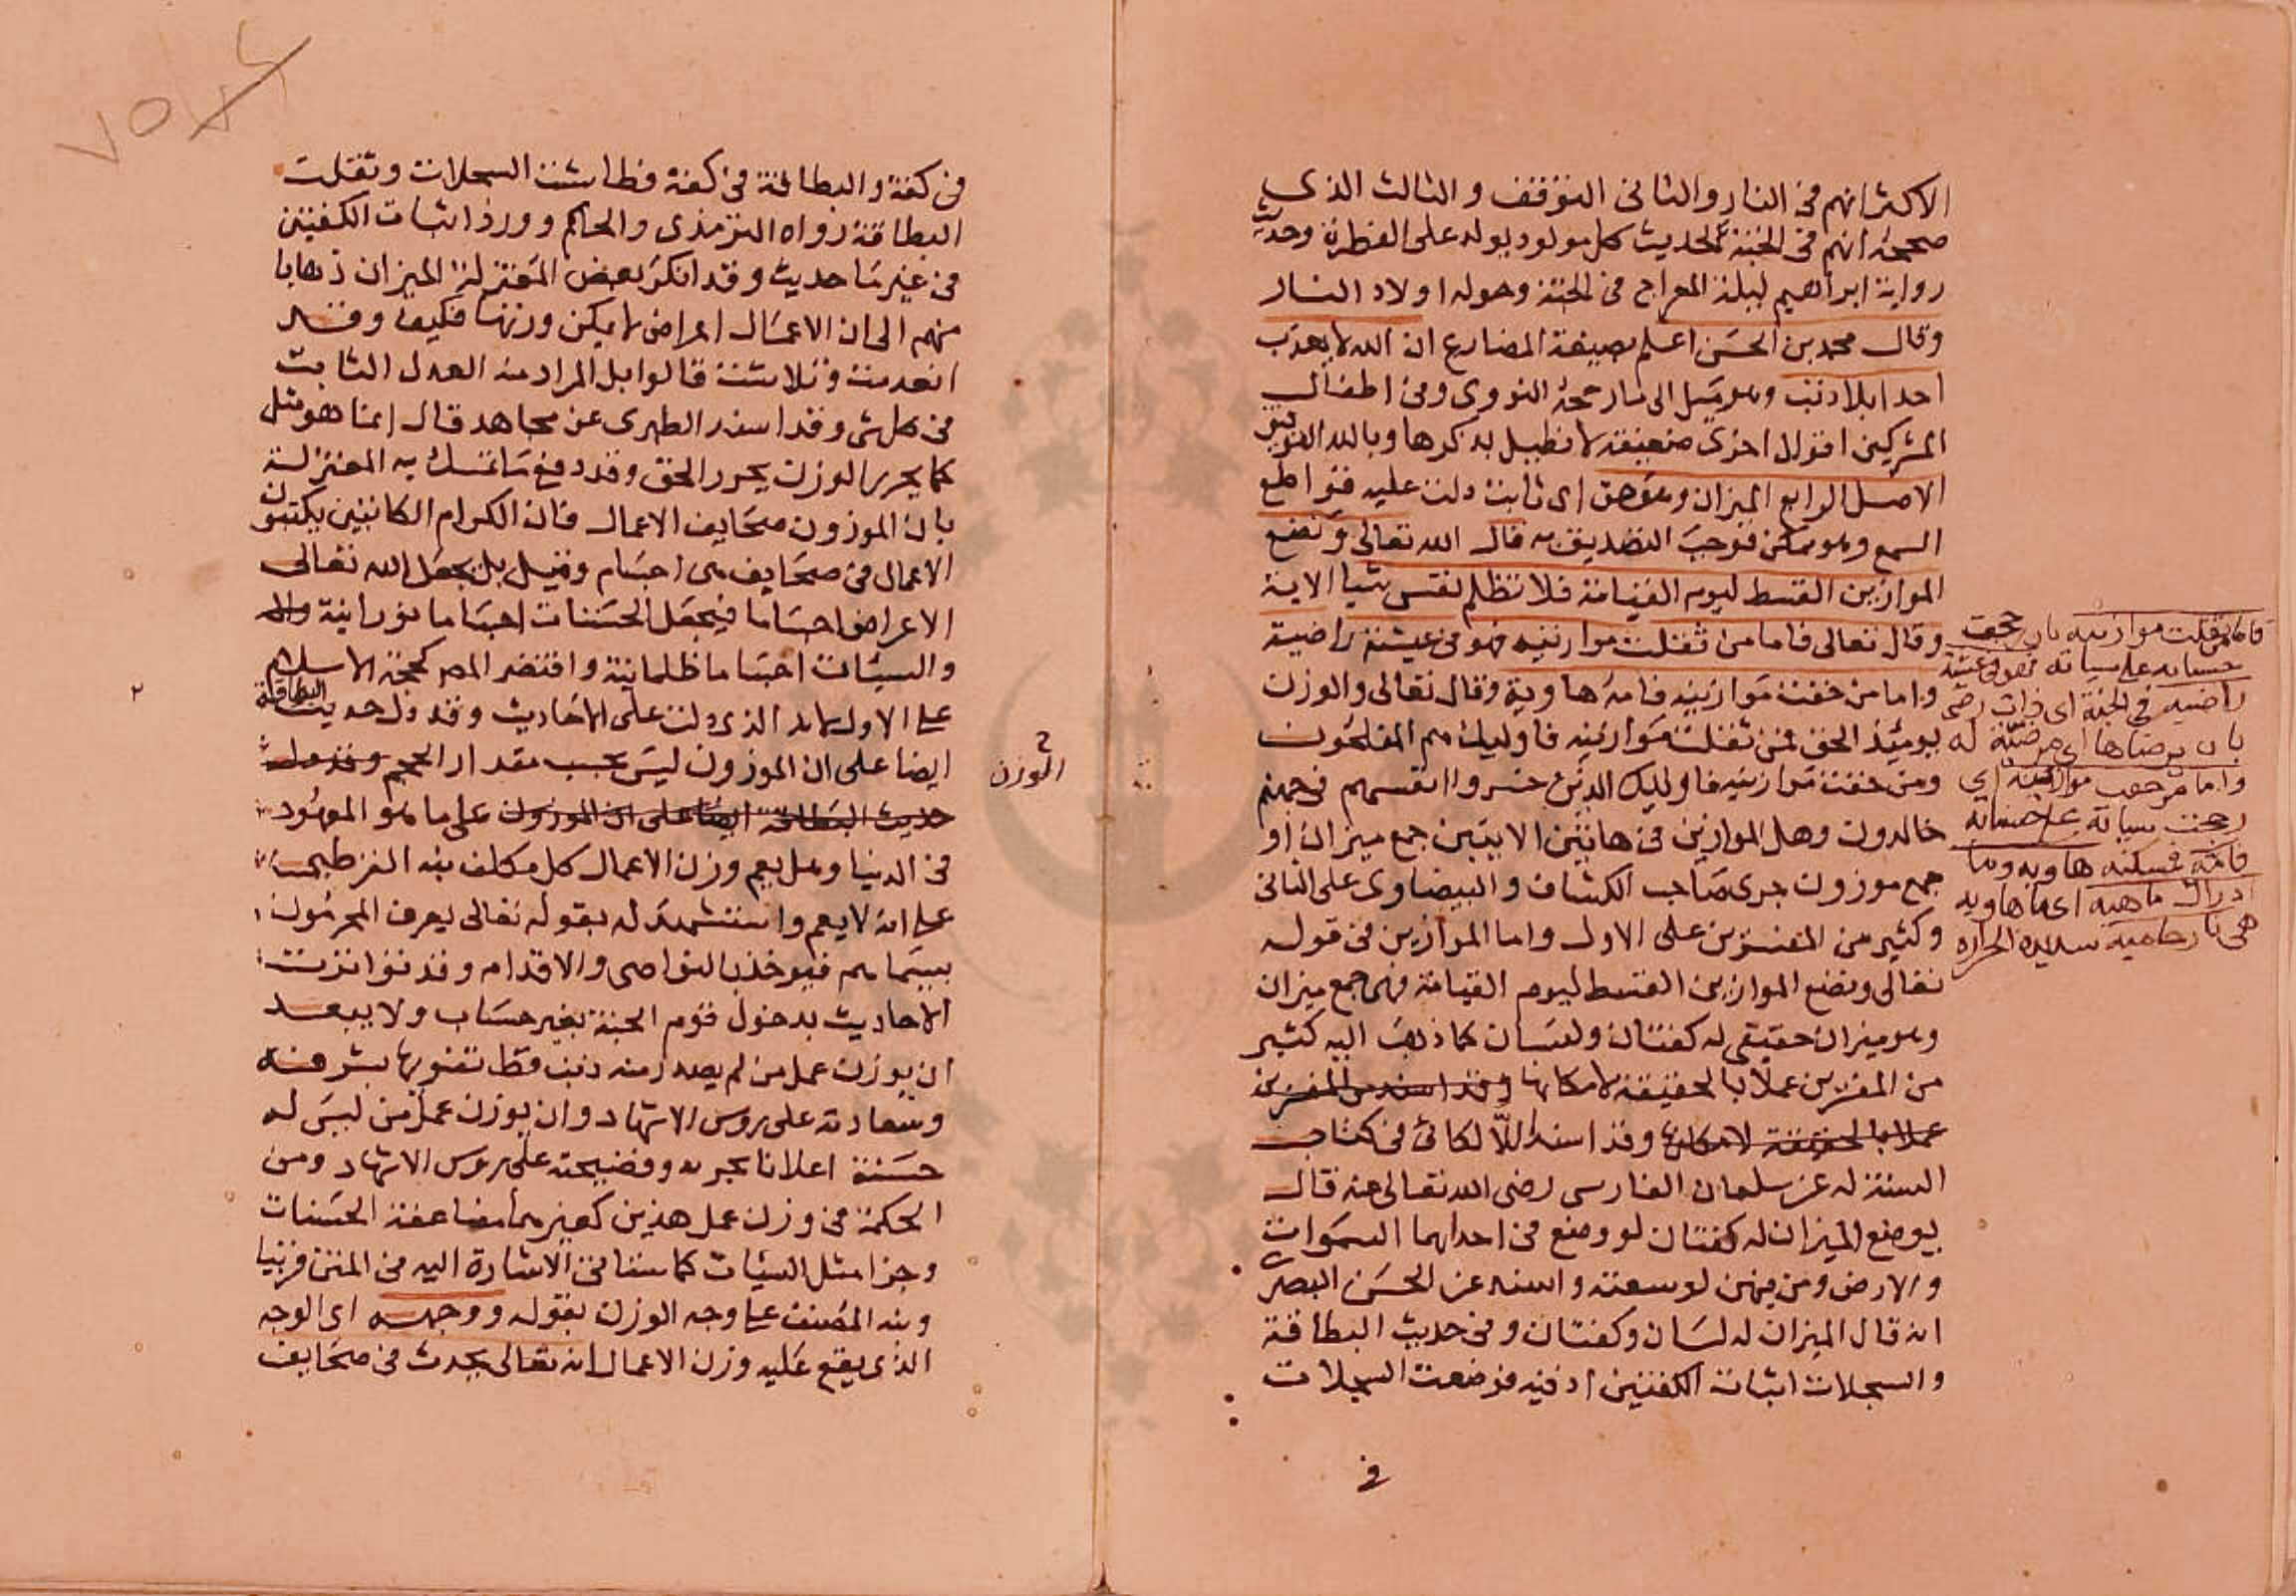 الاكثر انهم فى النار والثانى التوقف والثالث الذى
صححه انهم فى الجنة لحديث كل مولود يولد على الفطرة وحديث
رواية ابراهيم ليلة المعراج فى الجنة وحوله اولاد الناس
وقال محمد بن الحسن اعلم بصيغة المضارع ان الله لا يعذب
احدا بلا ذنب وهو ميل الى ما رجحه النووى وفى اطفال
المشركين اقوال اخرى ضعيفة لا نطيل بذكرها وبالله التوفيق
الاصل الرابع الميزان وهو حق اى ثابت دلت عليه قواطع
السمع وهو ممكن فوجب التصديق به قال الله تعالى ونضع
الموازين القسط ليوم القيامة فلا تظلم نفس شيا الاية
وقال تعالى فاما من ثقلت موازينه فهو فى عيشة راضية
واما من خفت موازينه فامه هاوية وقال تعالى والوزن
يومئذ الحق فمن ثقلت موازينه فاوليك هم المفلحون
ومن خفت موازينه فاوليك الذين خسروا انفسهم فى جهنم
خالدون وهل الموازين فى هاتين الايتين جمع ميزان او
جمع موزون جرى صاحب الكشاف والبيضاوى على الثانى
وكثير من المفسرين على الاول واما الموازين فى قوله
تعالى ونضع الموازين القسط ليوم القيامة فهى جمع ميزان
وهو ميزان حقيقى له كفتان ولسان كما ذهب اليه كثير
من المفسرين عملا بالحقيقة لامكانها وقد اسند من المفسرين
عملا بالحقيقة لامكانها وقد اسند اللالكائى فى كتاب
السنة له عن سلمان الفارسى رضى الله تعالى عنه قال
يوضع الميزان له كفتان لو وضع فى احداهما السموات
والارض ومن فيهن لوسعته واسند عن الحسن البصرى
انه قال الميزان له لسان وكفتان وفى حديث البطاقة
والسجلات اثبات الكفتين اذ فيه فوضعت السجلات
فى
فاما من ثقلت موازينه بان رجحت
حسناته على سياته فهو فى عيشة
راضيه فى الجنة اى ذات رضى
بان يرضاها اى مرضية له
واما من خفت موازينه اى
رجحت سياته على حسناته
فامه فمسكنه هاويه وما
ادراك ما هيه اى ما هاويه
هى نار حاميه شديدة الحرارة
فى كفة والبطاقة فى كفة فطاشت السجلات وثقلت
البطاقة رواه الترمذى والحاكم وورد اثبات الكفتين
فى غير ما حديث وقد انكر بعض المعتزلة الميزان ذهابا
منهم الى ان الاعمال اعراض لا يمكن وزنها فكيف وقد
انعدمت وتلاشت قالوا بل المراد منه العدل الثابت
فى كل شى وقد اسند الطبرى عن مجاهد قال انما هو مثل
كما يحرر الوزن يحرر الحق وقد دفع ما تمسك به المعتزلة
بان الموزون صحايف الاعمال فان الكرام الكاتبين يكتبون
الاعمال فى صحايف هى اجسام وقيل بل يجعل الله تعالى
الاعراض اجساما فيجعل الحسنات اجساما نورانية
والسيئات اجساما ظلمانية واقتصر المص كحجة الاسلام
على الاول لانه الذى دلت على الاحاديث وقد دل حديث البطاقة
ايضا على ان الموزون ليس بحسب مقدار الحجم وقد دل
حديث البطاقة ايضا على ان الموزون على ما هو المعهود
الوزن
فى الدنيا وهل يعم وزن الاعمال كل مكلف نبه القرطبى
على انه لا يعم واستشهد له بقوله تعالى يعرف المجرمون
بسيماهم فيوخذ بالنواصى والاقدام وقد تواترت
الاحاديث بدخول قوم الجنة بغير حساب ولا يبعد
ان يوزن عمل من لم يصدر منه ذنب قط تنويها بشرفه
وسعادته على روس الاشهاد وان يوزن عمل من ليس له
حسنة اعلانا بخزيه وفضيحته على روس الاشهاد ومن
الحكمة فى وزن عمل هذين كغيرهما مضاعفة الحسنات
وجزا مثل السيئات كما ستاتى الاشارة اليه فى المتن قريبا
ونبه المصنف على وجه الوزن بقوله ووجهه اى الوجه
الذى يقع عليه وزن الاعمال انه تعالى يحدث فى صحايف